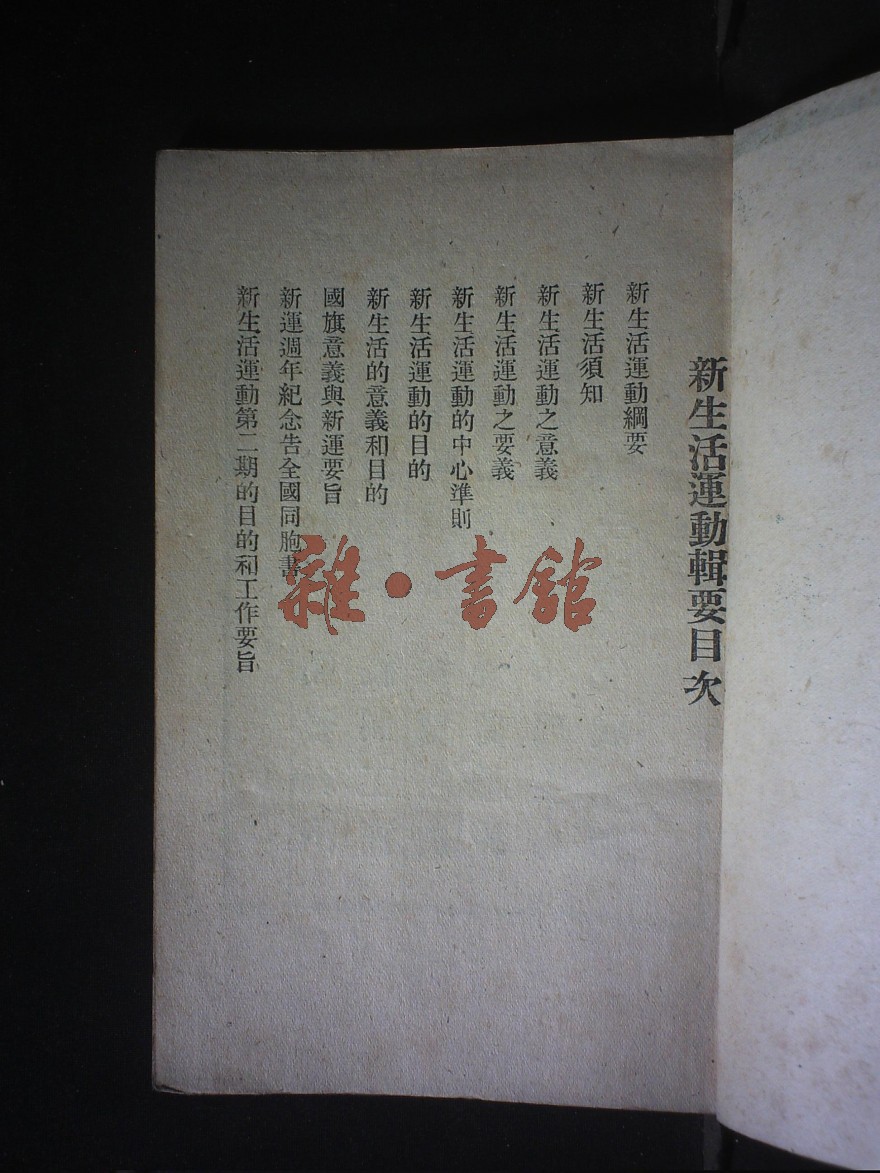 新生活運動輯要目次
新生活運動綱要
新生活須知
新生活運動之意義
新生活運動之要義
新生活運動的中心準則
新生活運動的目的
新生活的意義和目的
國旗意義與新運要旨
新運週年紀念告全國同胞書
新生活運動第二期的目的和工作要旨
雜·書館